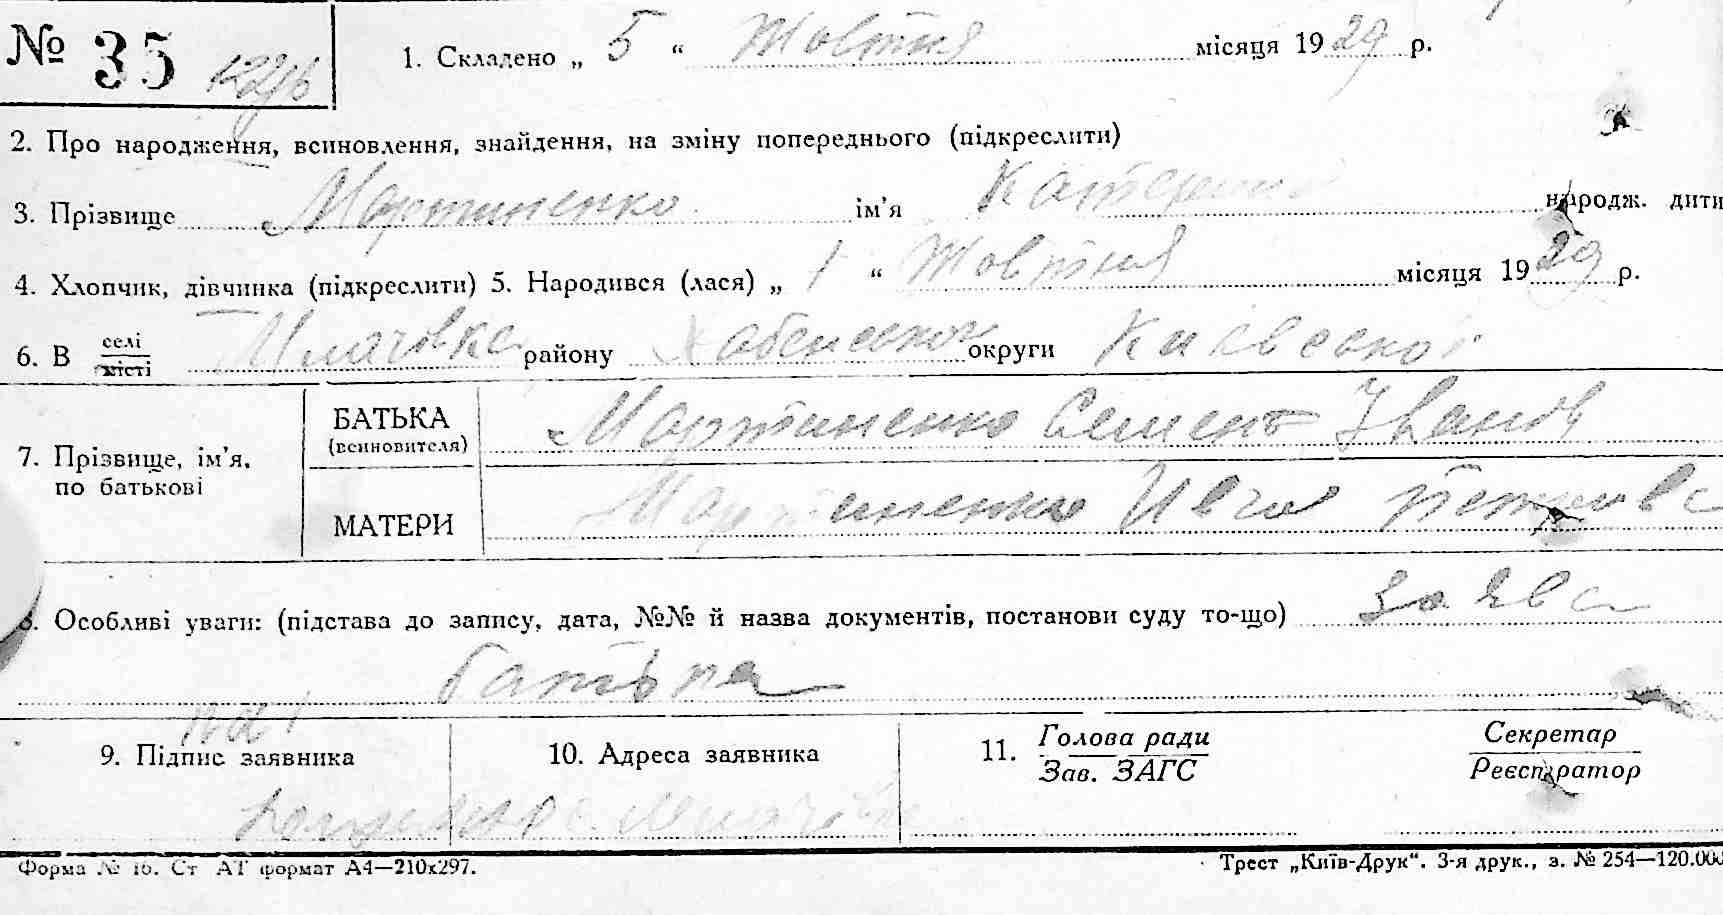 № 35 1. Складено „ 5 “ Жовтня місяця 1929 р.
2. Про народження, всиновлення, знайдення, на зміну попереднього (підкреслити)
3. Прізвище Мартиненко ім’я Катерина народж. дити
4. Хлопчик, дівчинка (підкреслити) 5. Народився (лася) „ 1 “ Жовтня місяця 1929 р.
6. В селі/місті Млачівка району Хабенської округи Київської
7. Прізвище, ім’я, по батькові
БАТЬКА (всиновителя) Мартиненко Семен Іванов
МАТЕРИ Мартиненко Ивга Петровс
8. Особливі уваги: (підстава до запису, дата, №№ й назва документів, постанови суду то-що) Заява
батька
9. Підпис заявника
10. Адреса заявника
11. Голова ради / Зав. ЗАГС
Секретар / Реєстратор
Форма № 16. Ст АТ формат А4—210х297.
Трест „Київ-Друк“. 3-я друк., з. № 254—120.000